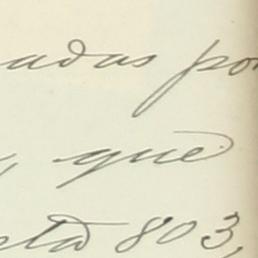 adas por
, que
sta 803,